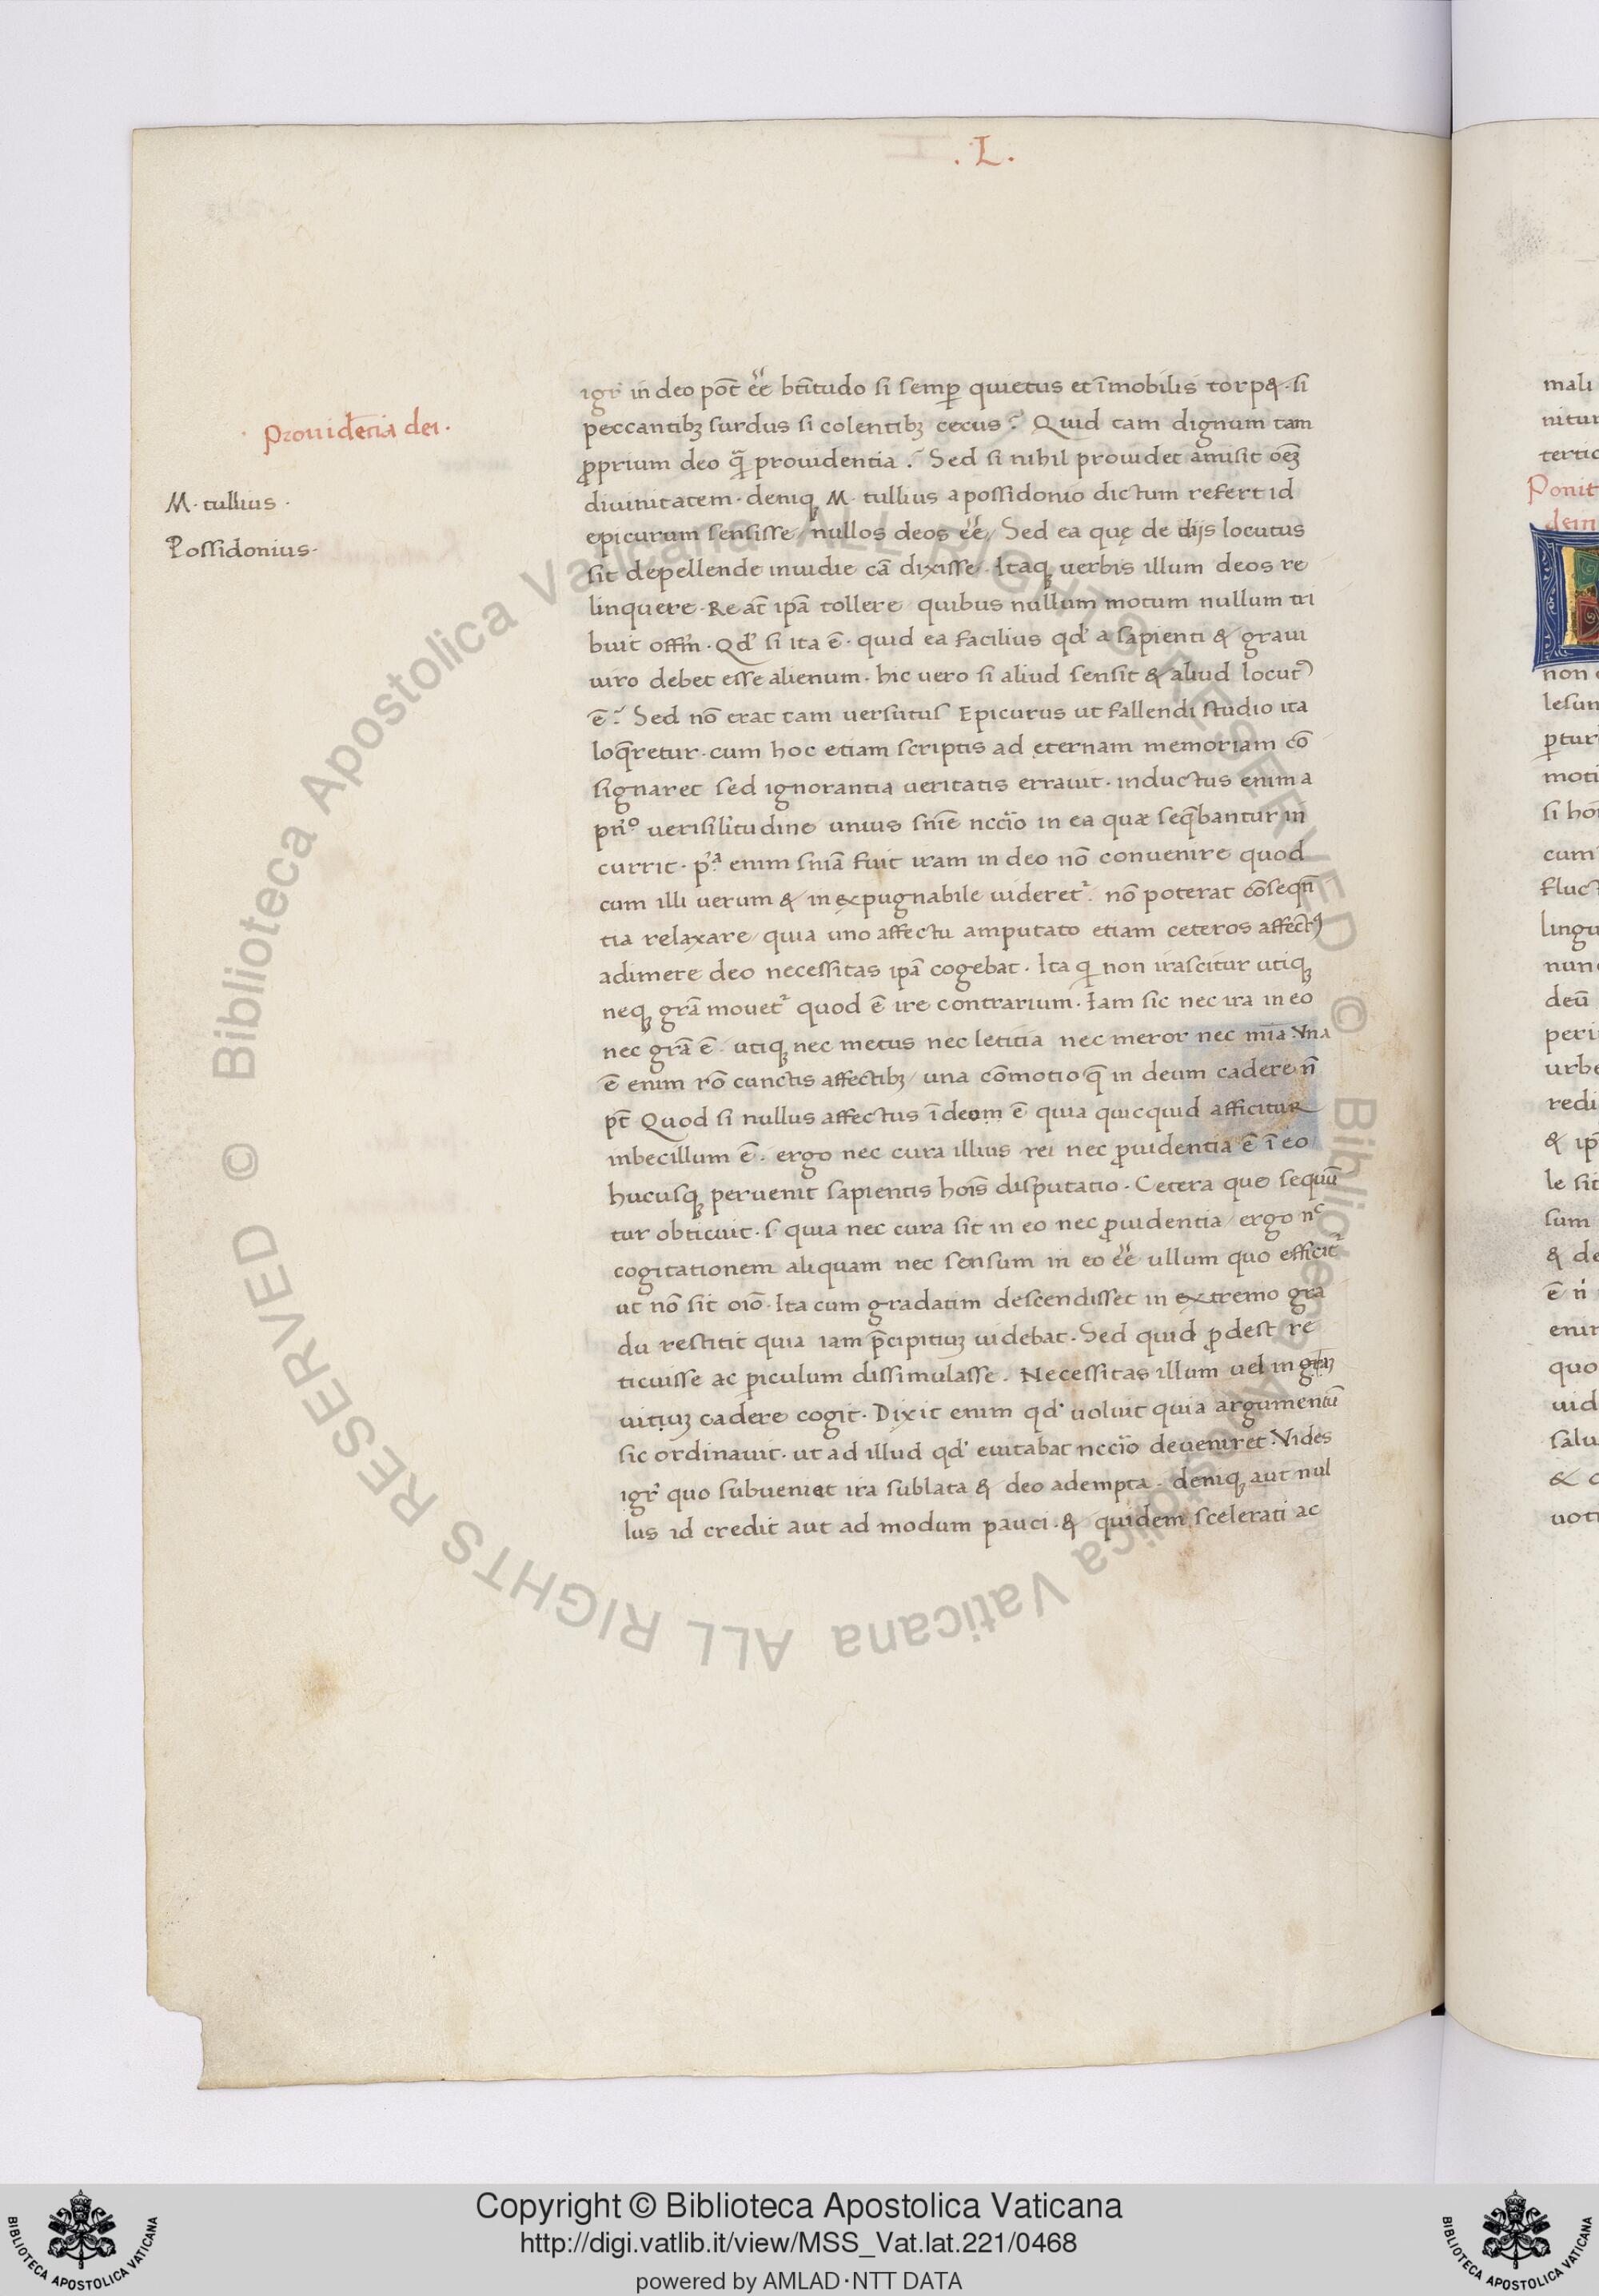 . L .
igr̃ in deo pot̃ ẽe bt̃itudo si semp̱ quietus et ĩmobilis torp&. si
peccantibꝫ surdus si colentibꝫ cecus? Quid tam dignum tam
ꝓprium deo q̃ꝫ prouidentia? Sed si nihil prouidet amisit oẽꝫ
diuinitatem. deniqꝫ M. tullius a possidonio dictum refert id
epicurum sensisse / nullos deos ẽe / Sed ea quę de dijs locutus
sit depellende inuidie cã dixisse. Itaqꝫ uerbis illum deos re
linquere. Re aũt ipã tollere quibus nullum motum nullum tri
buit offm̃. Qd' si ita ẽ. quid ea facilius qd' a sapienti & graui
uiro debet esse alienum. hic uero si aliud sensit & aliud locutꝰ
ẽ? Sed nõ erat tam uersutus Epicurus ut fallendi studio ita
loq̃retur. cum hoc etiam scriptis ad ęternam memoriam cõ
signaret sed ignorantia ueritatis errauit. inductus enim a
pñº uerisilitudine unius snĩe nccĩo in ea quæ seq̃bantur in
currit. p.ª enim snĩa fuit iram in deo nõ conuenire quod
cum illi uerum & inexpugnabile uideret̃. nõ poterat cõseqñ
tia relaxare / quia uno affectu amputato etiam ceteros affectꝰ
adimere deo necessitas ipã cogebat. Ita qi non irascitur utiqꝫ
neqꝫ grã mouet̃ quod ẽ ire contrarium. Iam sic nec ira in eo
nec grã ẽ. utiqꝫ nec metus nec letitia nec meror nec mĩa. Vna
ẽ enim rõ cunctis affectibꝫ / una cõmotio q̃ in deum cadere ñ
pt̃ Quod si nullus affectus ĩ deom ẽ quia quicquid afficitur
inbecillum ẽ. ergo nec cura illius rei nec ꝓuidentia ẽ ĩ eo
hucusqꝫ peruenit sapientis hoĩs disputatio. Cetera que sequũ
tur obticuit. s quia nec cura sit in eo nec ꝓuidentia / ergo nᶜ
cogitationem aliquam nec sensum in eo ẽe ullum quo efficit̃
ut nõ sit oĩo. Ita cum gradatim descendisset in extremo gra
du restitit quia iam p̃cipitiuꝫ uidebat. Sed quid ꝓdest re
ticuisse ac ꝑiculum dissimulasse. Necessitas illum uel in
uitiuꝫ cadere cogit. Dixit enim qd' uoluit quia argumentũ
sic ordinauit. ut ad illud qd' euitabat nccĩo deueniret. Vides
igr̃ quo subueniat ira sublata & deo adempta. deniqꝫ aut nul
lus id credit aut ad modum pauci. & quidem scelerati ac
prouidẽtia dei.
M. tullius.
Possidonius.
mali
nitur
tertio
Ponit
dem
non
lesun
ꝑtur
moti
si hoi
cum
fluct
lingu
nunc
deũ
peri
urbe
redi
& ip
le sit
sum
& de
enim
quo
uid
salu
uoti
© Biblioteca Apostolica Vaticana ALL RIGHTS RESERVED © Biblioteca Apostolica Vaticana ALL RIGHTS RESERVED
Copyright © Biblioteca Apostolica Vaticana
http://digi.vatlib.it/view/MSS_Vat.lat.221/0468
powered by AMLAD·NTT DATA
BIBLIOTECA APOSTOLICA VATICANA
BIBLIOTECA APOSTOLICA VATICANA